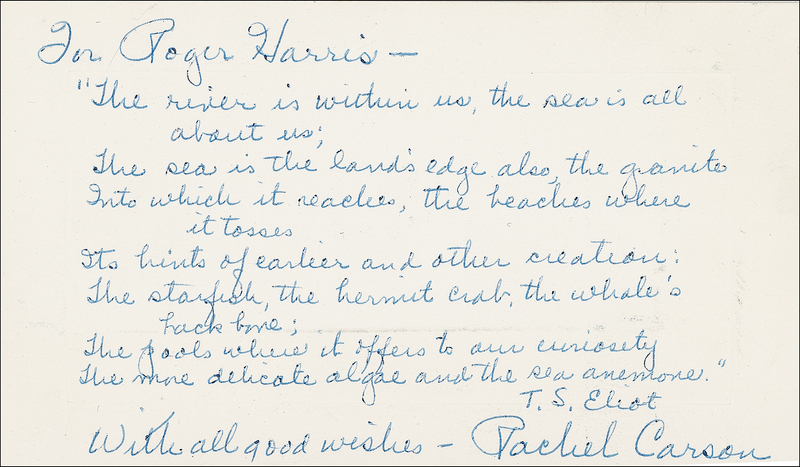 For Roger Harris —
"The river is within us, the sea is all
about us;
The sea is the land's edge also, the granite
Into which it reaches, the beaches where
it tosses
Its hints of earlier and other creation:
The starfish, the hermit crab, the whale's
backbone;
The pools where it offers to our curiosity
The more delicate algae and the sea anemone."
T. S. Eliot
With all good wishes — Rachel Carson